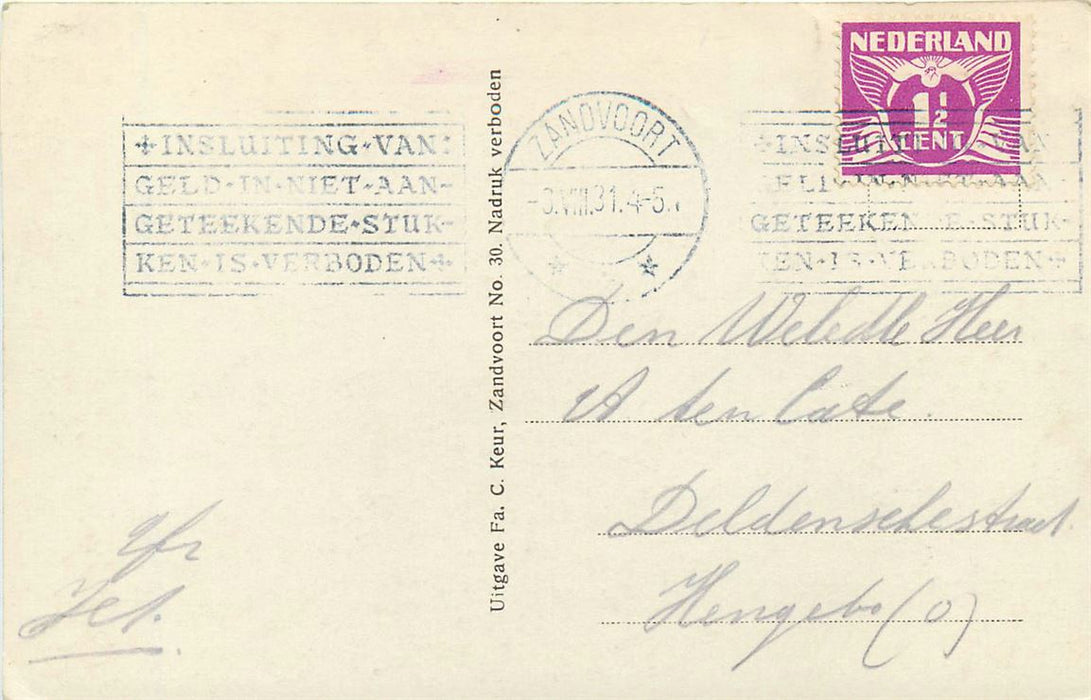 NEDERLAND
1½
CENT
✢INSLUITING·VAN
GELD-IN-NIET-AAN-
GETEEKENDE·STUK-
KEN·IS·VERBODEN✢
ZANDVOORT
VIII.31.4-5
✢INSLUITING·VAN
GELD-IN-NIET-AAN-
GETEEKENDE·STUK-
KEN·IS·VERBODEN✢
Uitgave Fa. C. Keur, Zandvoort No. 30. Nadruk verboden
Den Weledle Heer
A ten Cate.
Deldenschestraat
Hengelo (O)
Jet.